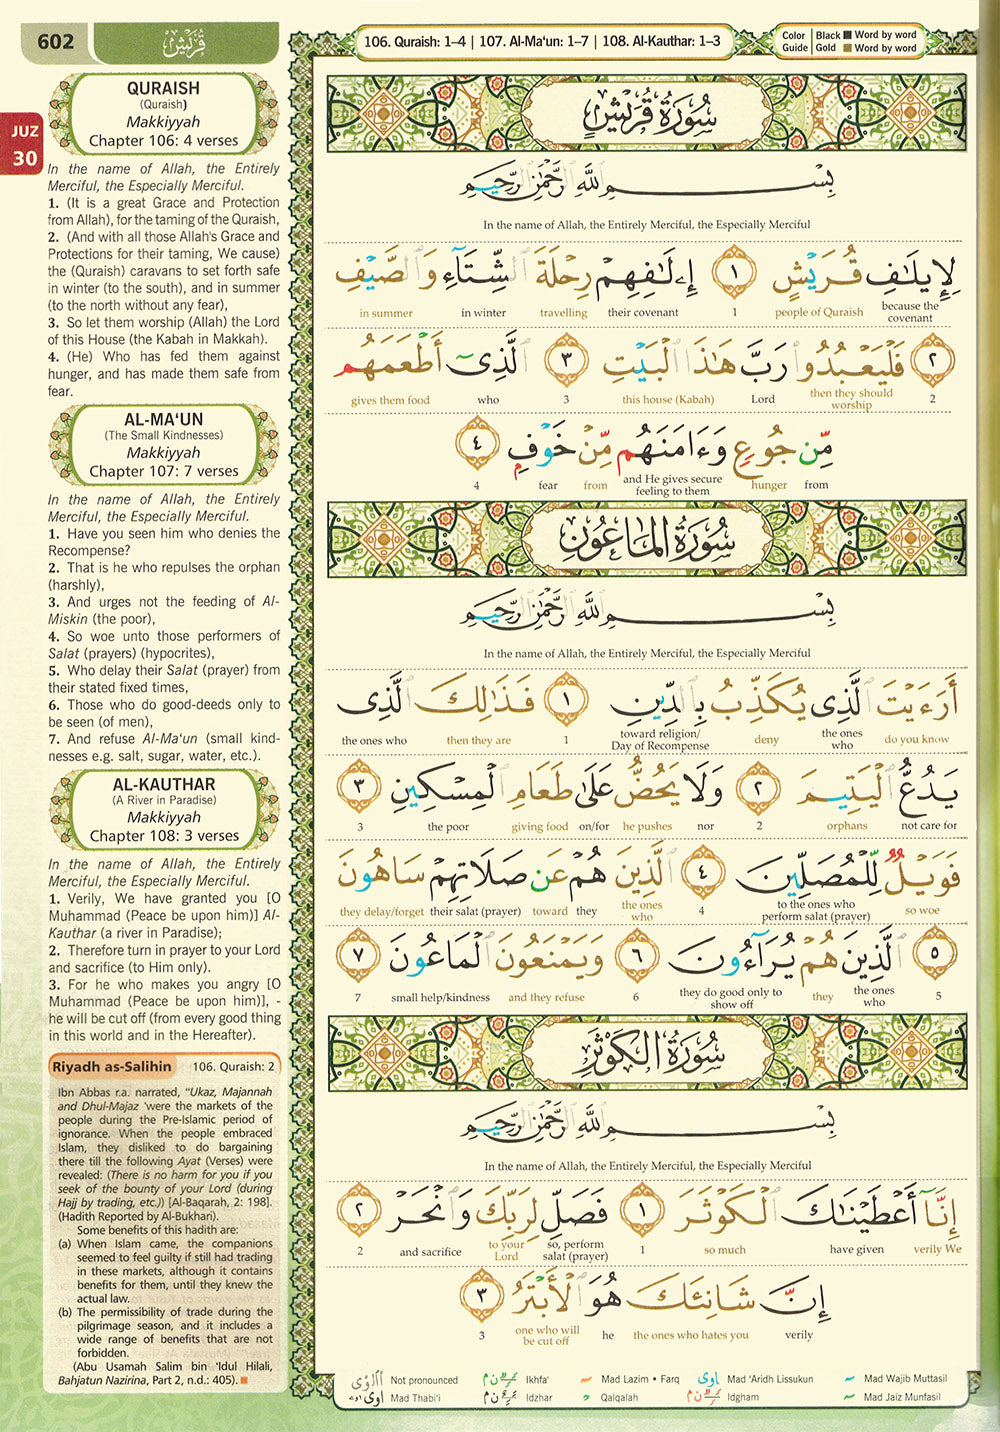 602
قُرَيْش
JUZ
30
QURAISH
(Quraish)
Makkiyyah
Chapter 106: 4 verses
In the name of Allah, the Entirely
Merciful, the Especially Merciful.
1. (It is a great Grace and Protection
from Allah), for the taming of the Quraish,
2. (And with all those Allah's Grace and
Protections for their taming, We cause)
the (Quraish) caravans to set forth safe
in winter (to the south), and in summer
(to the north without any fear),
3. So let them worship (Allah) the Lord
of this House (the Kabah in Makkah).
4. (He) Who has fed them against
hunger, and has made them safe from
fear.
AL-MA‘UN
(The Small Kindnesses)
Makkiyyah
Chapter 107: 7 verses
In the name of Allah, the Entirely
Merciful, the Especially Merciful.
1. Have you seen him who denies the
Recompense?
2. That is he who repulses the orphan
(harshly),
3. And urges not the feeding of Al-
Miskin (the poor),
4. So woe unto those performers of
Salat (prayers) (hypocrites),
5. Who delay their Salat (prayer) from
their stated fixed times,
6. Those who do good-deeds only to
be seen (of men),
7. And refuse Al-Ma'un (small kind-
nesses e.g. salt, sugar, water, etc.).
AL-KAUTHAR
(A River in Paradise)
Makkiyyah
Chapter 108: 3 verses
In the name of Allah, the Entirely
Merciful, the Especially Merciful.
1. Verily, We have granted you [O
Muhammad (Peace be upon him)] Al-
Kauthar (a river in Paradise);
2. Therefore turn in prayer to your Lord
and sacrifice (to Him only).
3. For he who makes you angry [O
Muhammad (Peace be upon him)], -
he will be cut off (from every good thing
in this world and in the Hereafter).
Riyadh as-Salihin 106. Quraish: 2
Ibn Abbas r.a. narrated, “Ukaz, Majannah
and Dhul-Majaz 'were the markets of the
people during the Pre-Islamic period of
ignorance. When the people embraced
Islam, they disliked to do bargaining
there till the following Ayat (Verses) were
revealed: (There is no harm for you if you
seek of the bounty of your Lord (during
Hajj by trading, etc.)) [Al-Baqarah, 2: 198].
(Hadith Reported by Al-Bukhari).
Some benefits of this hadith are:
(a) When Islam came, the companions
seemed to feel guilty if still had trading
in these markets, although it contains
benefits for them, until they knew the
actual law.
(b) The permissibility of trade during the
pilgrimage season, and it includes a
wide range of benefits that are not
forbidden.
(Abu Usamah Salim bin 'Idul Hilali,
Bahjatun Nazirina, Part 2, n.d.: 405).
106. Quraish: 1–4 | 107. Al-Ma‘un: 1–7 | 108. Al-Kauthar: 1–3
Color Guide Black Word by word
Gold Word by word
سُورَةُ قُرَيْشٍ
بِسْمِ ٱللَّهِ ٱلرَّحْمَٰنِ ٱلرَّحِيمِ
In the name of Allah, the Entirely Merciful, the Especially Merciful
لِإِيلَٰفِ قُرَيْشٍ ١ إِۦلَٰفِهِمْ رِحْلَةَ ٱلشِّتَآءِ وَٱلصَّيْفِ
because the covenant people of Quraish 1 their covenant travelling in winter in summer
٢ فَلْيَعْبُدُوا۟ رَبَّ هَٰذَا ٱلْبَيْتِ ٣ ٱلَّذِىٓ أَطْعَمَهُم
2 then they should worship Lord this house (Kabah) 3 who gives them food
مِّن جُوعٍ وَءَامَنَهُم مِّنْ خَوْفٍۭ ٤
from hunger and He gives secure feeling to them from fear 4
سُورَةُ المَاعُونِ
بِسْمِ ٱللَّهِ ٱلرَّحْمَٰنِ ٱلرَّحِيمِ
In the name of Allah, the Entirely Merciful, the Especially Merciful
أَرَءَيْتَ ٱلَّذِى يُكَذِّبُ بِٱلدِّينِ ١ فَذَٰلِكَ ٱلَّذِى
do you know the ones who deny toward religion/ Day of Recompense 1 then they are the ones who
يَدُعُّ ٱلْيَتِيمَ ٢ وَلَا يَحُضُّ عَلَىٰ طَعَامِ ٱلْمِسْكِينِ ٣
not care for orphans 2 nor he pushes on/for giving food the poor 3
فَوَيْلٌ لِّلْمُصَلِّينَ ٤ ٱلَّذِينَ هُمْ عَن صَلَاتِهِمْ سَاهُونَ
so woe to the ones who perform salat (prayer) 4 the ones who they toward their salat (prayer) they delay/forget
٥ ٱلَّذِينَ هُمْ يُرَآءُونَ ٦ وَيَمْنَعُونَ ٱلْمَاعُونَ ٧
5 the ones who they they do good only to show off 6 and they refuse small help/kindness 7
سُورَةُ الكَوْثَرِ
بِسْمِ ٱللَّهِ ٱلرَّحْمَٰنِ ٱلرَّحِيمِ
In the name of Allah, the Entirely Merciful, the Especially Merciful
إِنَّآ أَعْطَيْنَٰكَ ٱلْكَوْثَرَ ١ فَصَلِّ لِرَبِّكَ وَٱنْحَرْ ٢
verily We have given so much 1 so, perform salat (prayer) to your Lord and sacrifice 2
إِنَّ شَانِئَكَ هُوَ ٱلْأَبْتَرُ ٣
verily the ones who hates you he one who will be cut off 3
Not pronounced Ikhfa' Mad Lazim • Farq Mad 'Aridh Lissukun Mad Wajib Muttasil
Mad Thabi'i Idzhar Qalqalah Idgham Mad Jaiz Munfasil